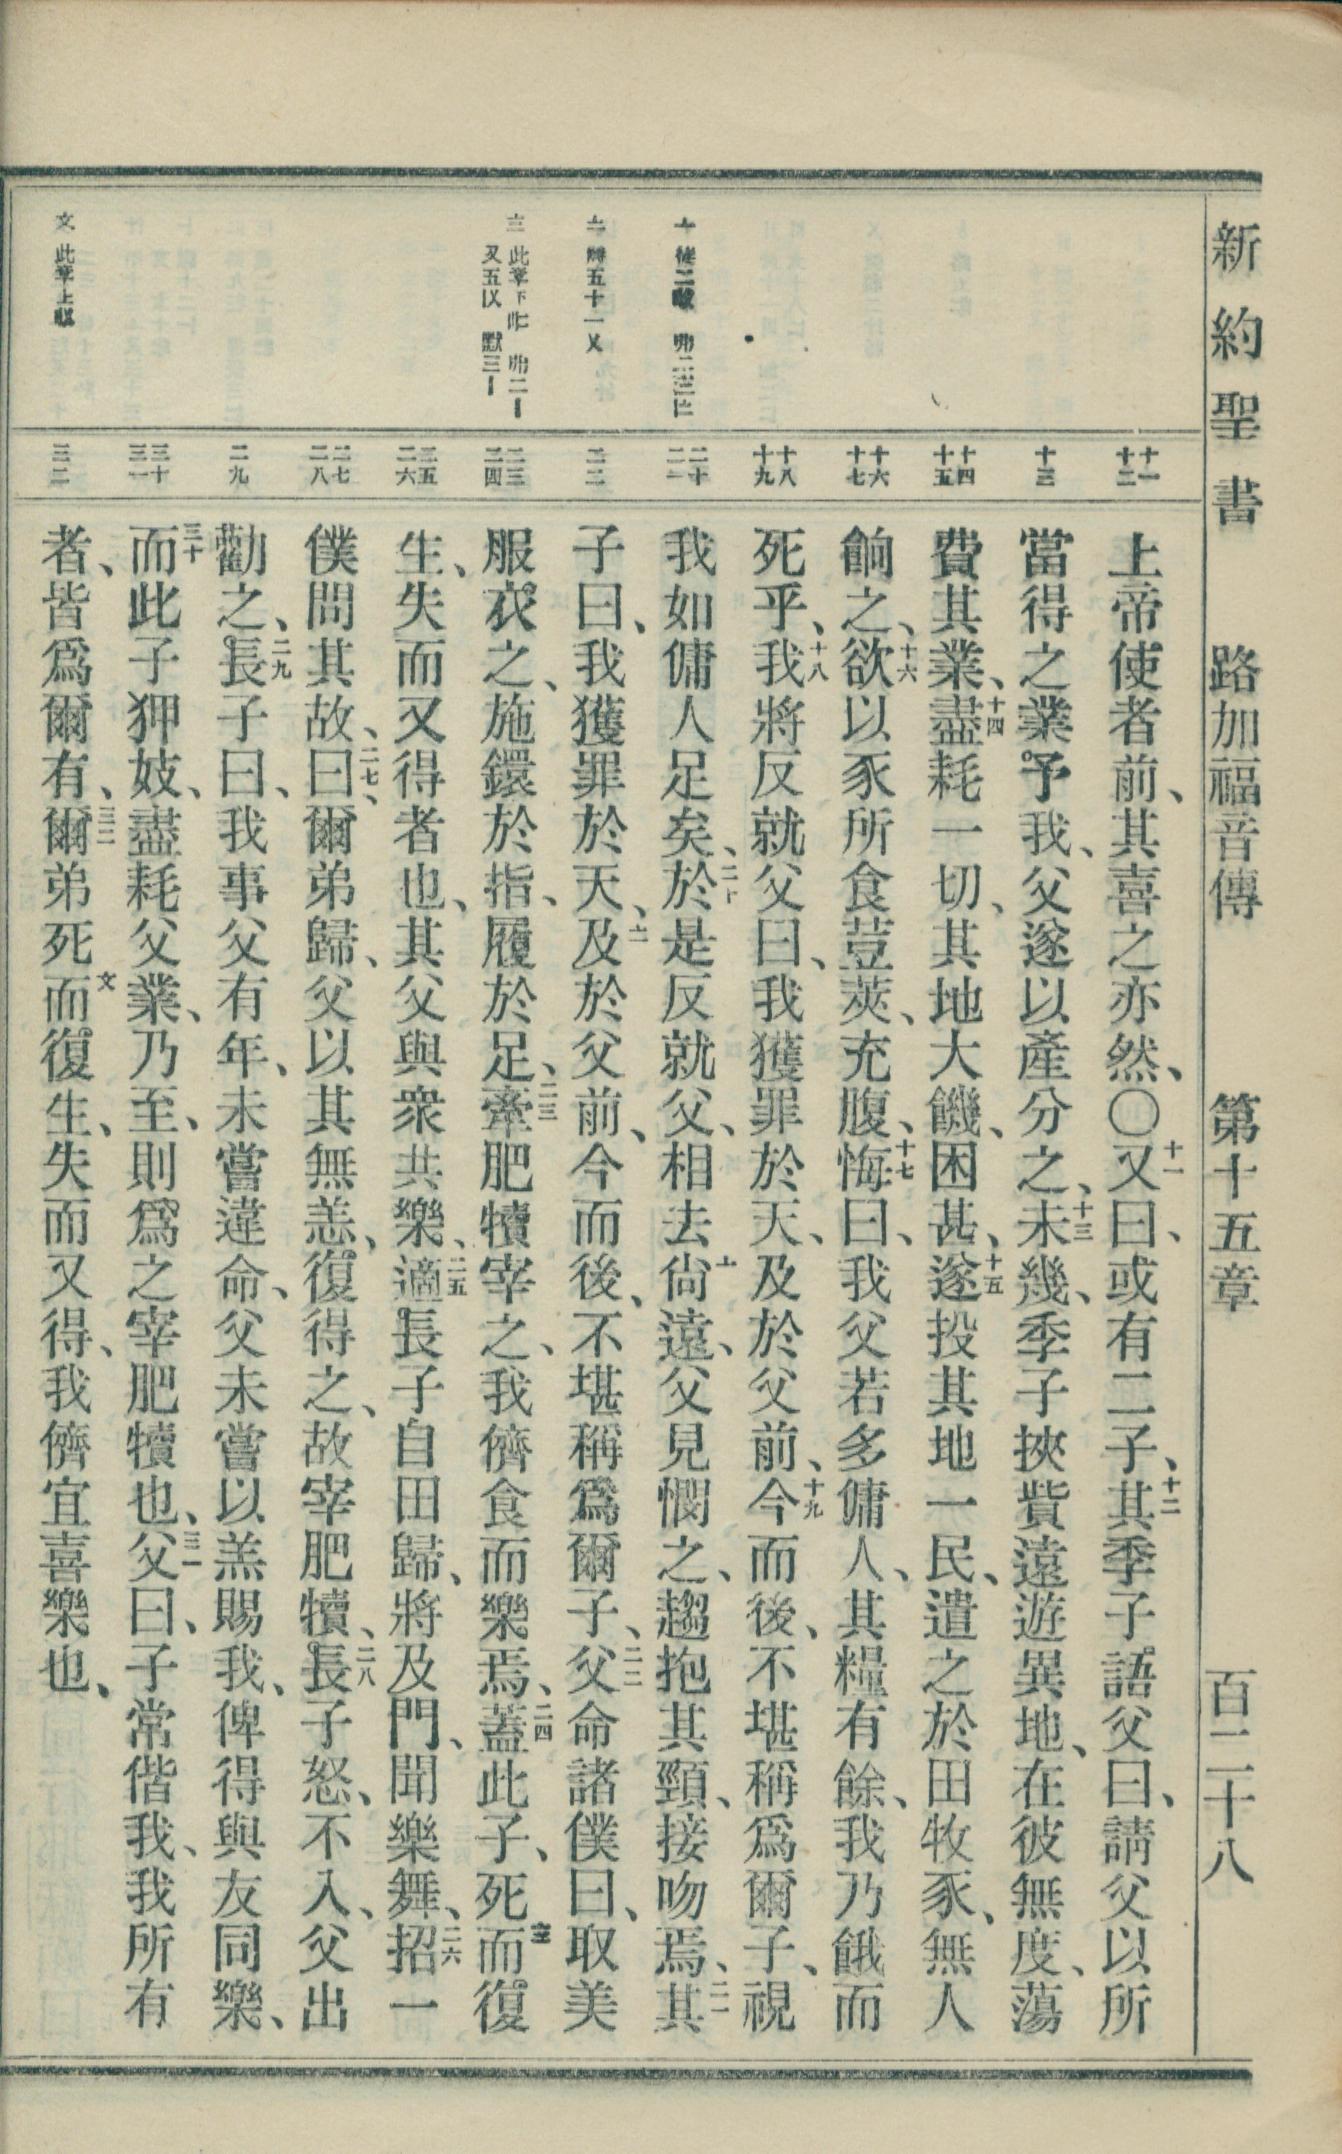 新約聖書 路加福音傳 第十五章 百二十八
十一 十二
十三
十四 十五
十六 十七
十八 十九
二十 二一
二二
二三 二四
二五 二六
二七 二八
二九
三十 三一
三二
上帝使者前、其喜之亦然、〇十一又曰、或有二子、十二其季子語父曰、請父以所
當得之業予我、父遂以產分之、十三未幾、季子挾貲遠遊異地、在彼無度、蕩
費其業、十四盡耗一切、其地大饑、困甚、十五遂投其地一民、遣之於田牧豕、無人
餉之、十六欲以豕所食荳莢、充腹、十七悔曰、我父若多傭人、其糧有餘、我乃餓而
死乎、十八我將反就父曰、我獲罪於天、及於父前、十九今而後、不堪稱爲爾子、視
我如傭人足矣、二十於是反就父、相去尙遠、父見憫之、趨抱其頸、接吻焉、二一其
子曰、我獲罪於天、及於父前、今而後、不堪稱爲爾子、二二父命諸僕曰、取美
服衣之、施鐶於指、履於足、二三牽肥犢宰之、我儕食而樂焉、二四蓋此子、死而復
生、失而又得者也、其父與衆共樂、二五適長子自田歸、將及門、聞樂舞、二六招一
僕問其故、二七曰、爾弟歸、父以其無恙、復得之、故宰肥犢、二八長子怒、不入、父出
勸之、二九長子曰、我事父有年、未嘗違命、父未嘗以羔賜我、俾得與友同樂、
三十而此子狎妓、盡耗父業、乃至、則爲之宰肥犢也、三一父曰、子常偕我、我所有
者、皆爲爾有、三二爾弟死而復生、失而又得、我儕宜喜樂也、